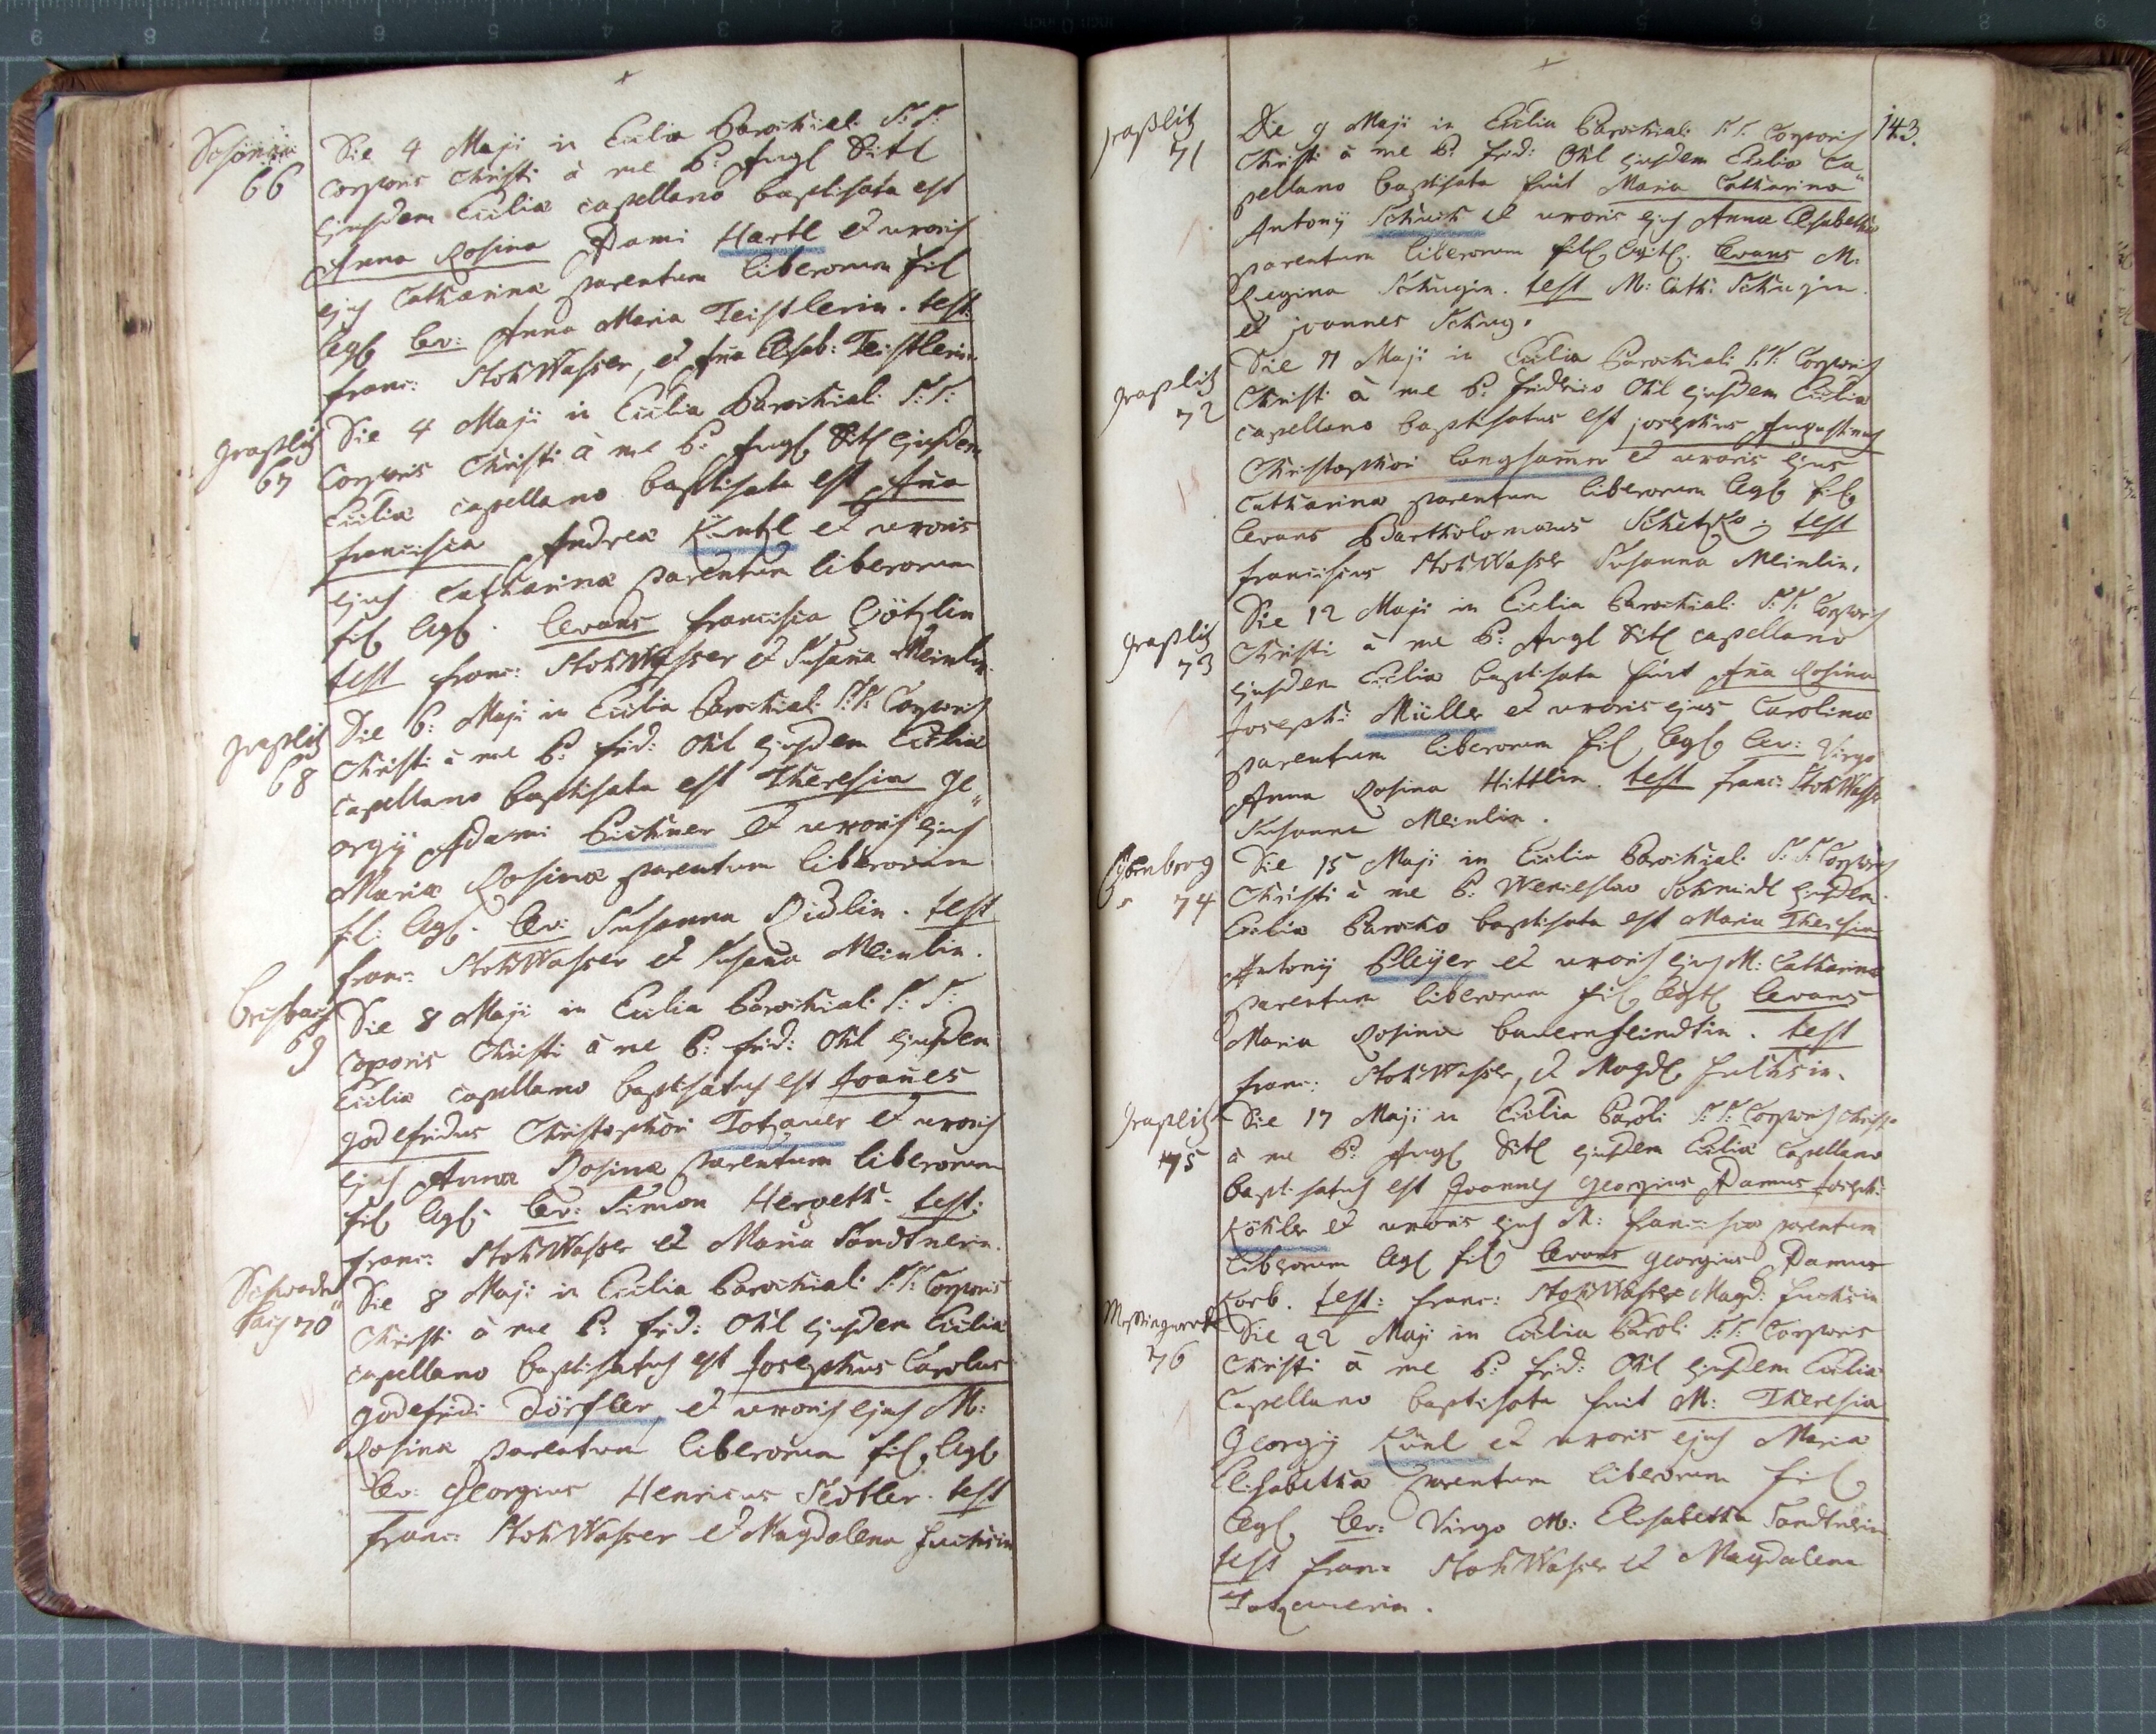 Schönau
66
Die 4 Maji in Ecclia Parochiali S.S.
Corporis Christi à me P: Augl Sitl
ejusdem Eccliæ capellano baptisata est
Anna Rosina Adami Hartl et uxoris
ejus Catharinæ parentum liberorum fil
legl lev: Anna Maria Teistlerin. test:
Franc: StohWasser, et Aña Elisab: Teistlerin
Graslitz
67
Die 4 Maji in Ecclia Parochiali S:S:
Corporis Christi à me P: Augl Sitl ejusdem
Eccliæ capellano baptisata est Aña
Francisca Andreæ Küntzl et uxoris
ejus Catharinæ parentum liberorum
fil legl. levans Francisca Götzlin
test Franc: StohWasser et Susaña Meinlin.
Graslitz
68
Die 6: Maji in Ecclia Parochiali S:S: Corporis
Christi à me P: Frid: Ohl ejusdem Eccliæ
capellano baptisata est Theresia Ge„
orgij Adami Pichner et uxoris ejus
Mariæ Rosinæ parentum liberorum
fil: legl. lev: Susanna Ridlin. test
Franc: StohWasser et Susaña Meinlin.
69
Die 8 Maji in Ecclia Parochiali S: S:
Coporis Christi à me P: Frid: Ohl ejusdem
Eccliæ capellano baptisatus est Joañes
Godefridus Christophori Totzauer et uxoris
ejus Annæ Rosinæ parentum liberorum
fil legl. lev: Simon Hergeth. test:
Franc: StohWasser et Maria Sandtnerin.
Schwader„
bach 70
Die 8 Maji in Ecclia Parochiali S:S: Corporis
Christi à me P: Frid: Ohl ejusdem Eccliæ
capellano baptisatus est Josephus Carolus
Godefridi Dörfler, et uxoris ejus M:
Rosinæ parentum liberorum fil, legl
lev: Georgius Henricus Seidtler. test
Franc: StohWasser et Magdalena Fuchsin
143.
Graßlitz
71
Die 9 Maji in Ecclia Parochiali S:S: Corporis
Christi à me P: Frid: Ohl ejusdem Eccliæ Ca„
pellano baptisata fuit Maria Catharina
Antonij Schuch et uxoris ejus Annæ Elisabethæ
parentum liberorum fil, legitl. levans M:
Regina Schugin. test M: Cath: Schugin.
et Joannes Schug.
Graßlitz
72
Die 11 Maji in Ecclia Parochiali S:S: Corporis
Christi à me P: Friderico Ohl ejusdem Eccliæ
capellano baptisatus est Josephus Augustinus
Christophori Langhammer et uxoris ejus
Catharinæ parentum liberorum legl fil,
levans Bartholomæus test
Franciscus StohWasser Susanna Meinlin.
Graßlitz
73
Die 12 Maji in Ecclia Parochiali S:S: Corporis
Christi à me P: Augl Sitl capellano
ejusdem Eccliæ baptisata fuit Aña Rosina
Josephi Müller et uxoris ejus Carolinæ
parentum liberorum fil, legl, lev: Virgo
Anna Rosina Hittlin. test Franc: StohWasser
Susanna Meinlin.
Eibenberg
74
Die 15 Maji in Ecclia Parochiali S:S: Corporis
Christi à me P: Wenceslao Schmidt ejusdem
Eccliæ Parocho baptisata est Maria Theresia
Antonij Pleyer et uxoris ejus M: Catharinæ
parentum liberorum fil, legitl levans
Maria Rosina Bauernfeindtin. test
Franc: StohWasser, et Magdl Fuchsin.
Graslitz
75
Die 17 Maji in Ecclia Paroli S:S: Corporis Christi
à me P: Augl Sitl ejusdem Eccliæ Capellano
baptisatus est Joannes Georgius Adamus Josephi
Köhler et uxoris ejus M: Franciscæ parentum
liberorum legl fil levans Georgius Adamus
Korb. test: Franc: StohWasser Magd: Fuchsin
Messingwerk
76
Die 22 Maji in Ecclia Paroli S:S: Corporis
Christi à me P: Frid: Ohl ejusdem Eccliæ
Capellano baptisata fuit M: Theresia
Georgij Künl et uxoris ejus Mariæ
Elisabethæ parentum liberorum fil
legl, lev: Virgo M: Elisabetha Sandtnerin.
test Franc StohWasser et Magdalena
Totzauerin.